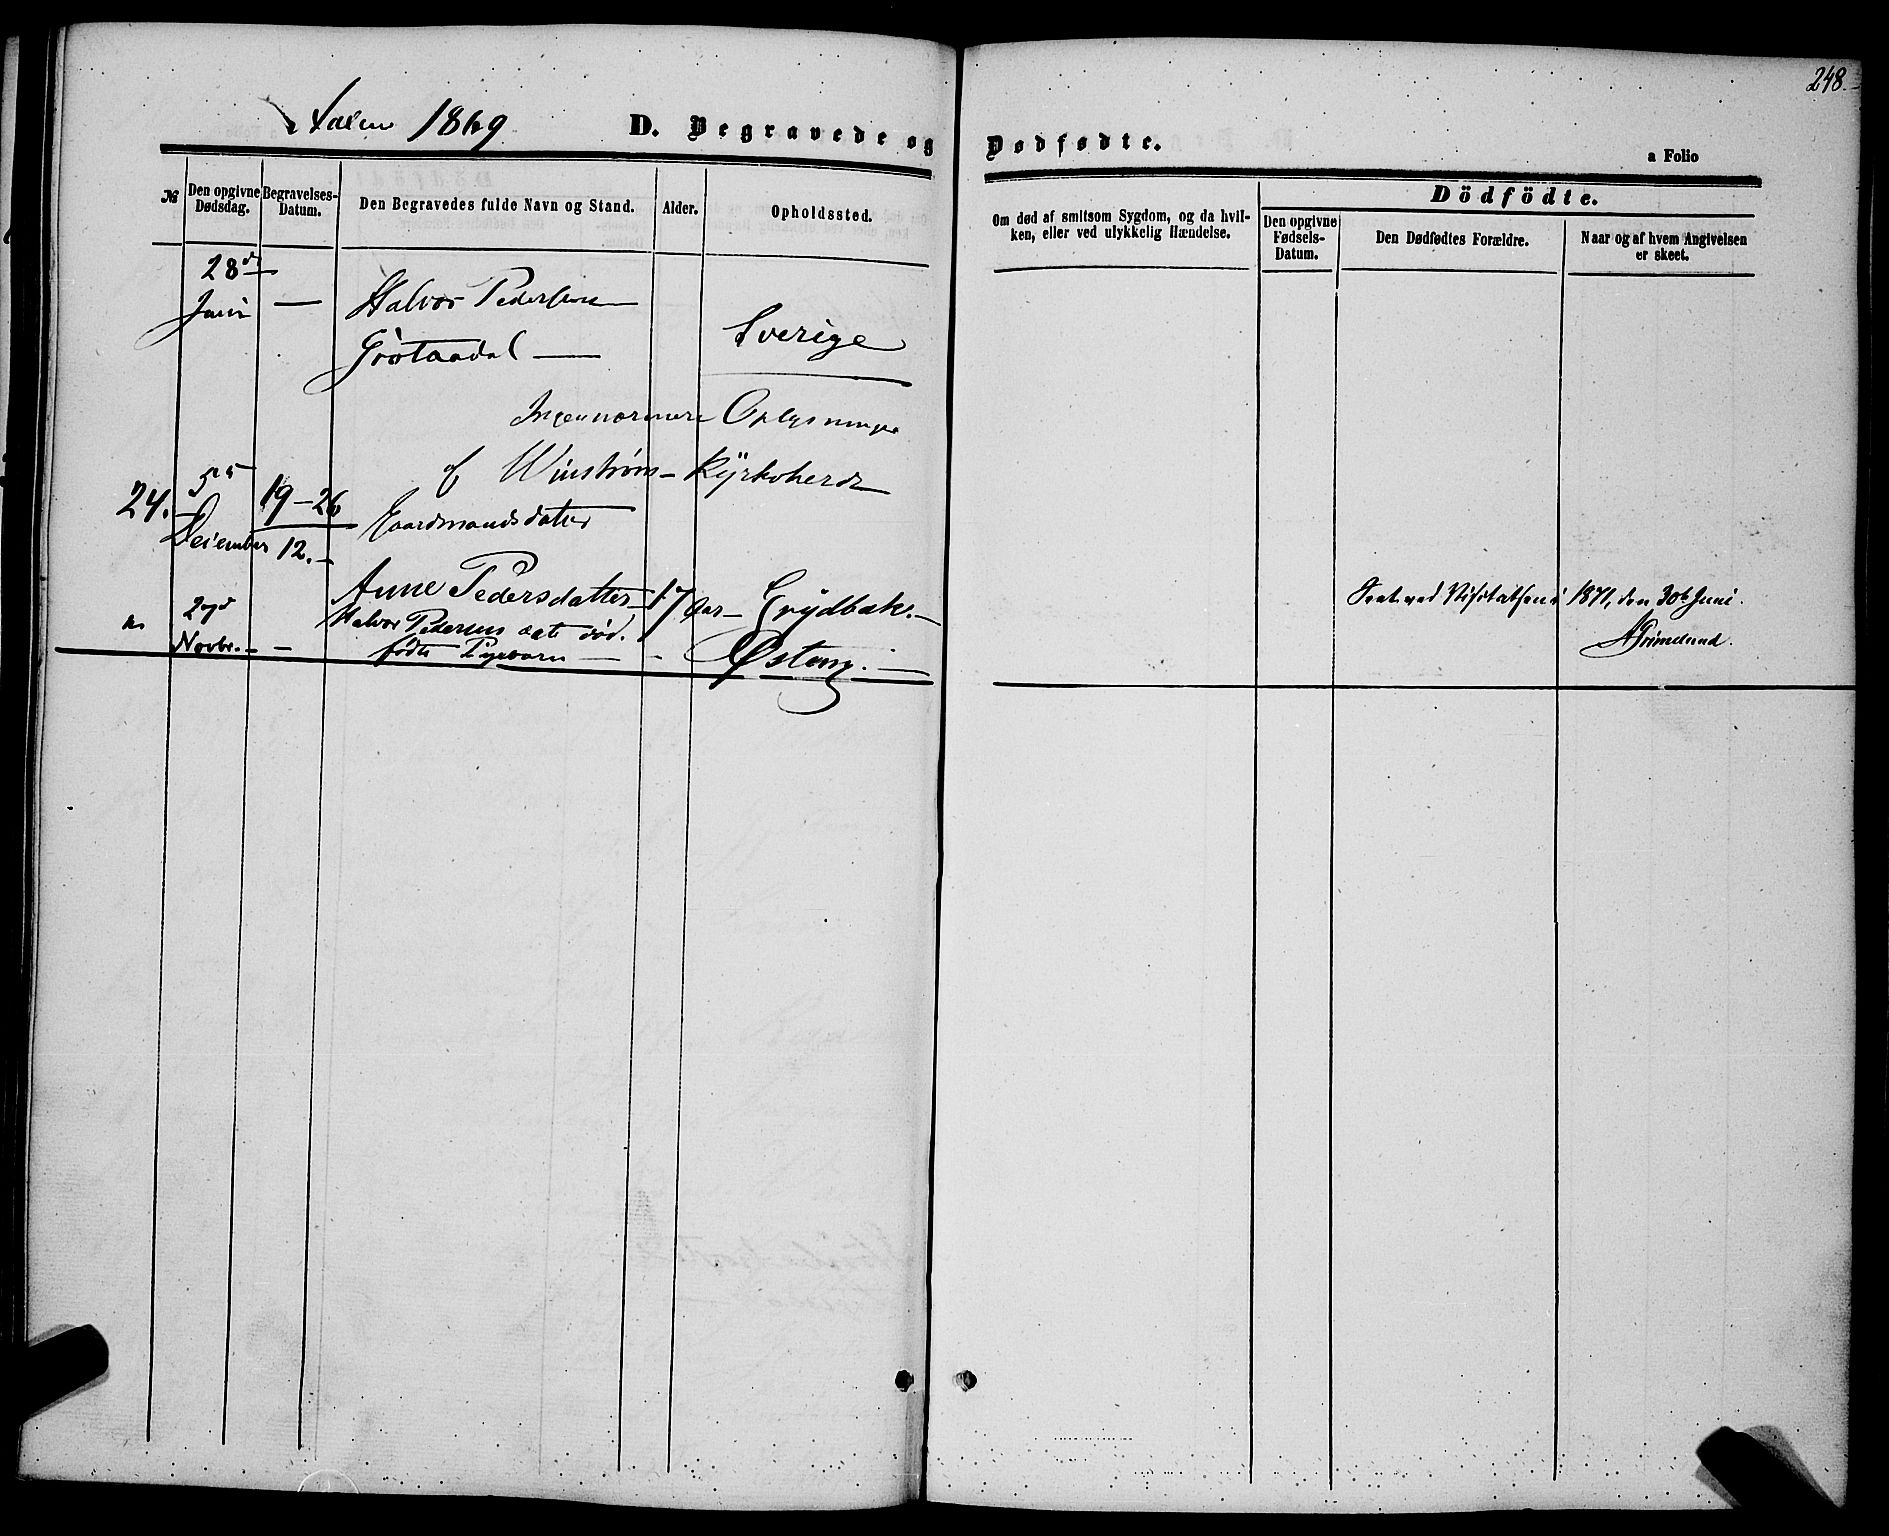 1869 D. Begravede og Dødfødte.
248.
a Folio
№
Den opgivne Dødsdag.
Begravelses-Datum.
Den Begravedes fulde Navn og Stand.
Alder.
Opholdssted.
Om død af smitsom Sygdom, og da hvil-
ken, eller ved ulykkelig Hændelse.
Dödfödte.
Den opgivne Fødsels-Datum.
Den Dødfødtes Forældre.
Naar og af hvem Angivelsen
er skeet.
28d
Juni — Halvor Pedersen
Grøtaadal — Sverige
Ingen nærmere Oplysninger
af Winstrøm — Kyrkoherde
24. 5te December 19–26/12.– Gaardmandsdatter
Anne Pedersdatter 17 Aar – Grydbæk.–
27d Novbr. – – Halvor Pedersens død-
fødte Pigebarn — – Østeng. —
Seet ved Visitatsen i 1871, den 30te Juni.
Grimelund.